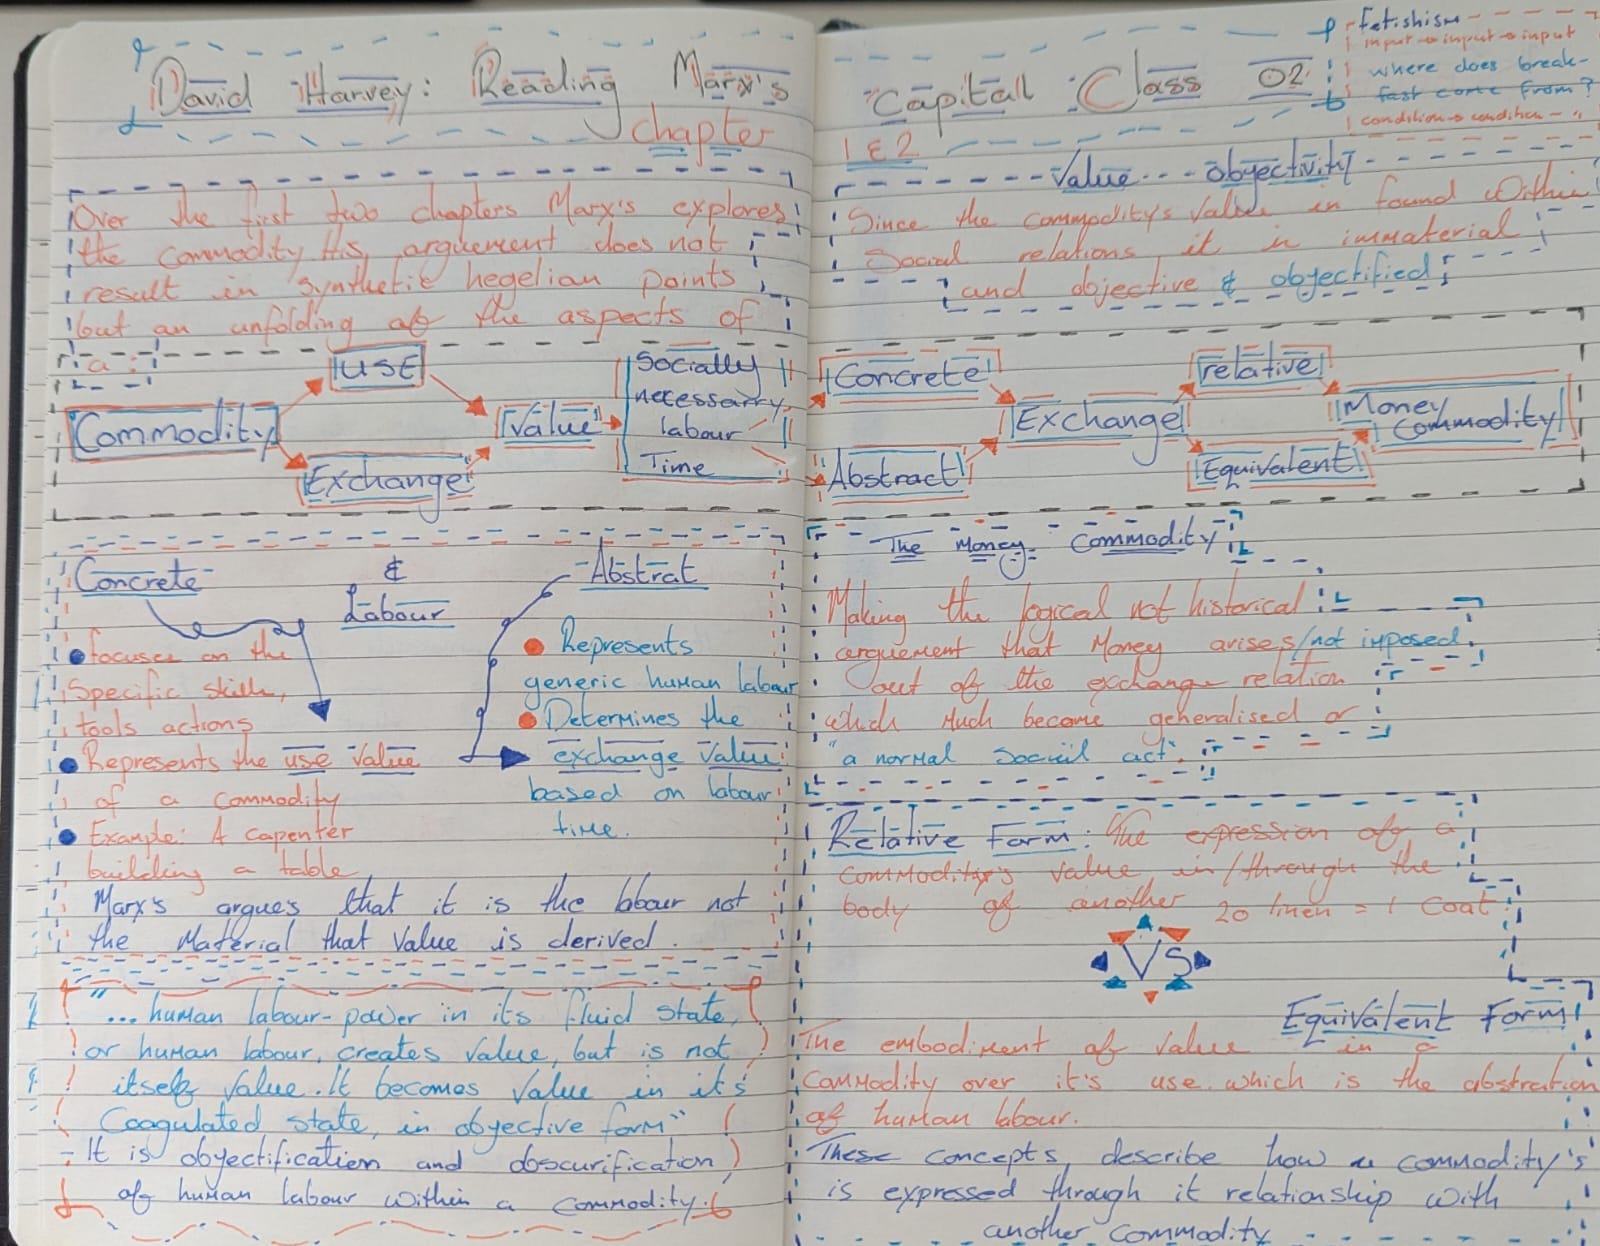 David Harvey: Reading Marx's Capital Class 02
chapter 1 & 2
Over the first two chapters Marx's explores
the commodity His arguement does not
result in synthetic hegelian points
but an unfolding of the aspects of
a :
Commodity
USE
Exchange
Value
Socially
necessarry
labour
Time
Concrete
Abstract
Exchange
relative
Equivalent
Money
Commodity
Concrete & Abstrat
Labour
focuses on the
specific skills,
tools actions
Represents the use value
of a commodity
Example: A capenter
building a table
Represents
generic human labour
Determines the
exchange value
based on labour
time.
Marx's argues that it is the labour not
the Material that value is derived.
"... human labour-power in its fluid state,
or human labour, creates value, but is not
itself value. It becomes value in it's
Coagulated state, in objective form"
- It is objectification and obscurification
of human labour within a commodity.
fetishism
input → input → input
where does break-
fast come from?
condition → condition
Value objectivity
Since the commodity's value in found within
Social relations, it in immaterial
and objective & objectified
The Money Commodity
Making the logical not historical
arguement that Money arises/not imposed
out of the exchange relation
which such become generalised or
"a normal social act".
Relative Form: The expression of a
commodity's value in/through the
body of another 20 linen = 1 Coat
VS
Equivalent Form
The embodiment of value in a
commodity over it's use. which is the abstration
of human labour.
These concepts describe how a commodity's
is expressed through it relationship with
another commodity